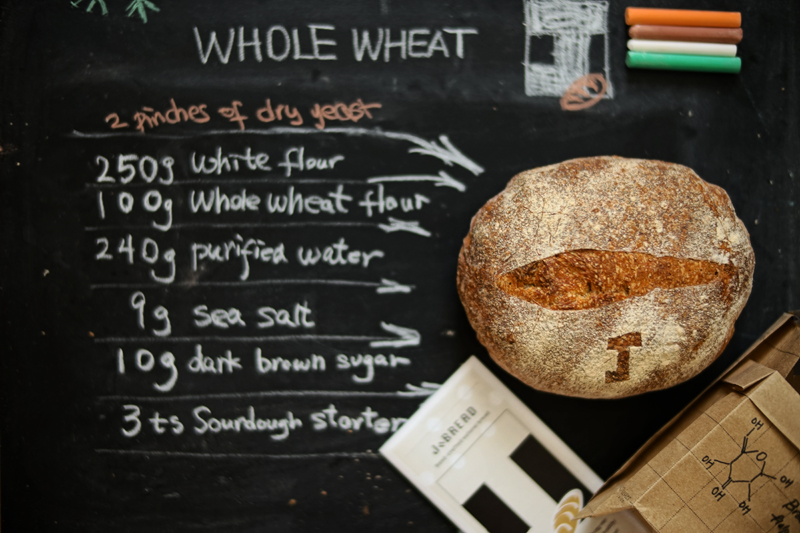 WHOLE WHEAT
2 pinches of dry yeast
250g white flour
100g whole wheat flour
240g purified water
9g sea salt
10g dark brown sugar
3 ts Sourdough starter
J
JOBREAD
OH
O
HO
OH
HO
OH